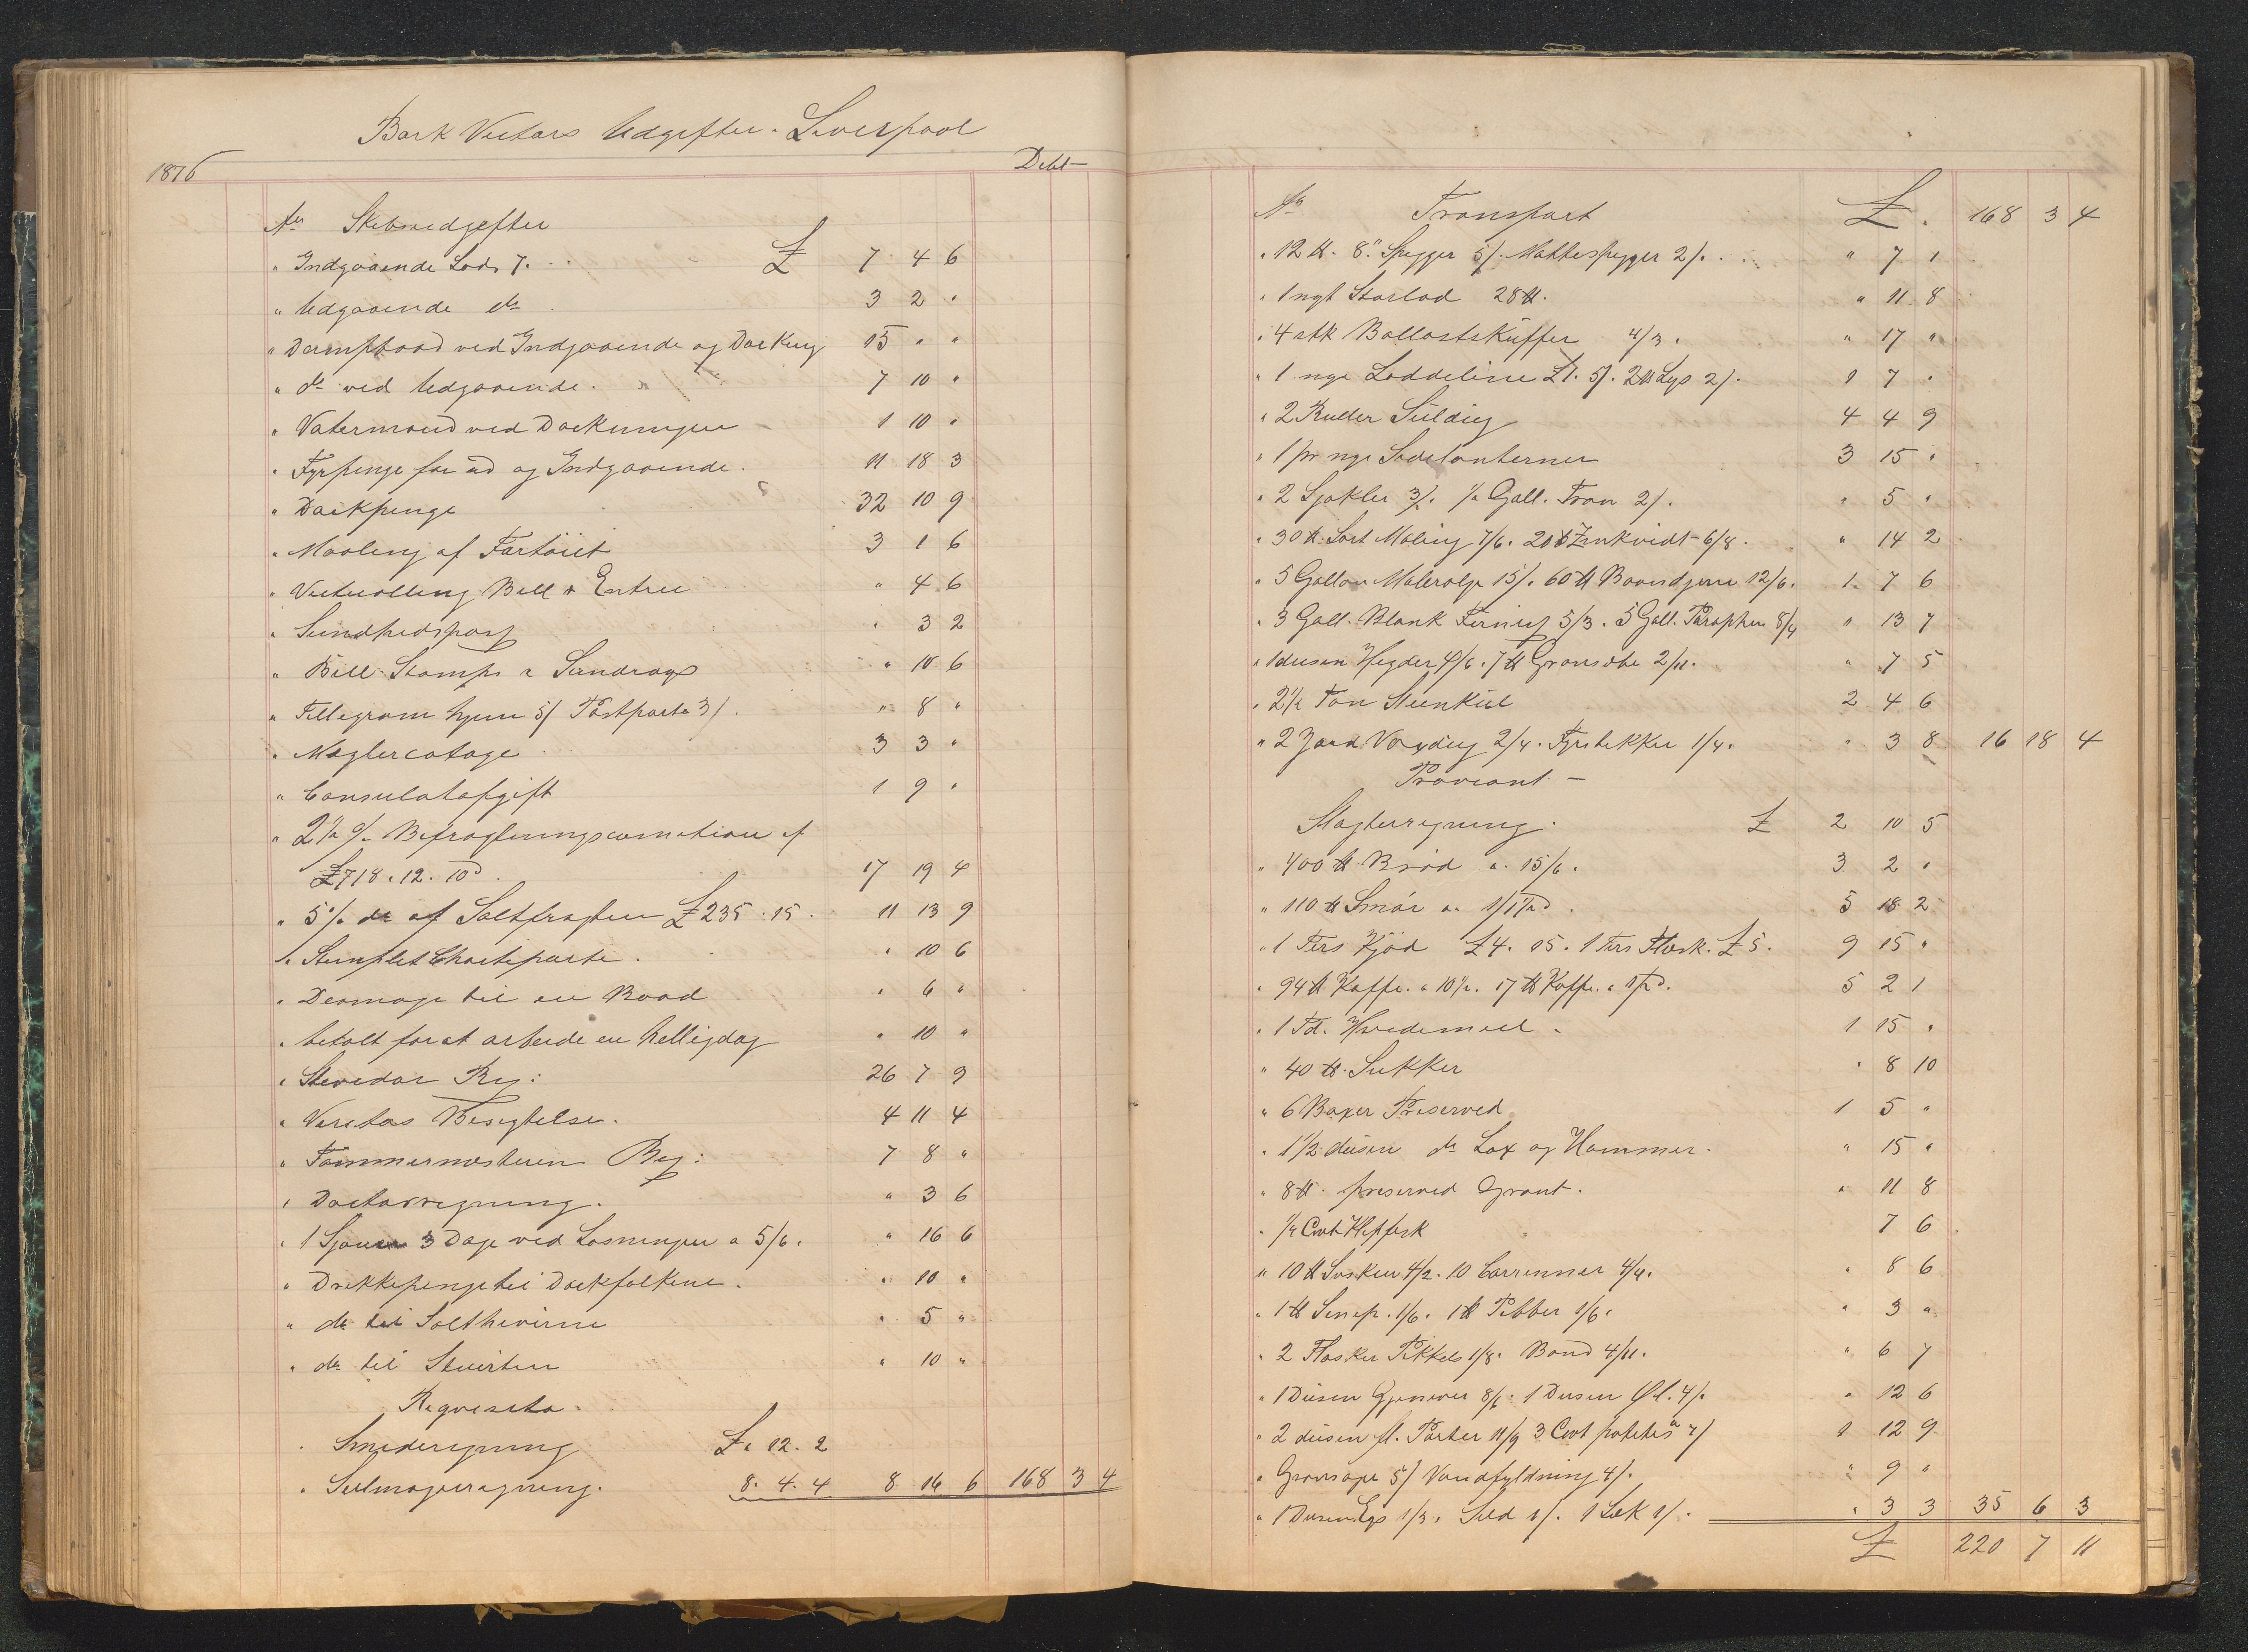 Bark Victors Udgifter. Liverpool
1876 Debt
An Skibsudgifter
" Indgaaende Lods 7. £ 7 4 6
" Udgaaende do 3 2 "
" Dampbaad ved Indgaaende og Docking 15 " "
" do ved Udgaaende. 7 10 "
" Vatermand ved Dockningen 1 10 "
" Fyrpenge for ud og Indgaaende. 11 18 3
" Dockpenge 32 10 9
" Maaling af Fartöiet 3 1 6
" Victualling Bill & Entree " 4 6
" Sundhedspas " 3 2
" Bill Stamps & Sundrags " 10 6
" Tellegram hjem 5/ Postporto 3/. " 8 "
" Mæglercotage 3 3 "
" Consulatafgift 1 9 "
" 2½ % Befragtningscomition af
£718. 12. 10d. 17 19 4
" 5% do af Saltfragten £235. 15. 11 13 9
" Stemplet Charteparti. " 10 6
" Demage til en Baad " 6 "
" betalt for at arbeide en Helligdag " 10 "
" Stevedor Reg: 26 7 9
" Veritas Besigtelse. 4 11 4
" Tømmermesteren Reg: 7 8 "
" Doctorregning. " 3 6
" 1 Sjouer 3 Dage ved Losningen a 5/6. " 16 6
" Drikkepenge til Dockfolkene. " 10 "
" do til Salthiverne " 5 "
" do til Stuerten " 10 "
Reqvesita.
Smederegning £ " 12. 2
" Seilmagerregning. 8. 4. 4 8 16 6 168 3 4
An Transport £. 168 3 4
" 12 ℔. 8" Spigger 5/. Mattespigger 2/. " 7 1
" 1 nyt Starlod 28 ℔. " 11 8
" 4 stk Ballastskuffer 4/3. " 17 "
" 1 nye Loddeline £1. 5/. 2 ℔ Lys 2/. 1 7 "
" 2 Ruller Seildug 4 4 9
" 1 pr nye Sidelanterner 3 15 "
" 2 Sjakler 3/. ½ Gall. Tran 2/. " 5 "
" 30 ℔. Sort Maling 7/6. 20 ℔ Zinkvidt 6/8. " 14 2
" 5 Gallon Malerolje 15/. 60 ℔ Baandjern 12/6. 1 7 6
" 3 Gall. Blank Fernis 5/3. 5 Gall. Paraphin 8/4 " 13 7
" 1 dusen Hegder 4/6. 7 ℔ Grønsøbe 2/11. " 7 5
" 2½ Ton Steenkul 2 4 6
" 2 Yard Voxdug 2/4. Fyrstikker 1/4. " 3 8 16 18 4
Proviant -
Slagterregning. £ 2 10 5
" 400 ℔ Brød a. 15/6. 3 2 "
" 110 ℔ Smör a. 1/1½d. 5 18 2
" 1 Ters Kjöd £4. 15. 1 Ters Flæsk. £5. 9 15 "
" 94 ℔ Kaffe. a 10½. 17 ℔ Kaffe. a 1/2d. 5 2 1
" 1 Td. Hvedemeel. 1 15 "
" 40 ℔. Sukker " 8 10
" 6 Boxer Preserved 1 5 "
" 1½ dusen do Lax og Hommer. " 15 "
" 8 ℔. preserved Grønt. " 11 8
" ½ Cwt Klipfisk 7 6
" 10 ℔ Svsker 4/2. 10 Correnner 4/4. " 8 6
" 1 ℔ Senep. 1/6. 1 ℔ Pibber 1/6. " 3 "
" 2 Flasker Pikkels 1/8. Bønd 4/11. " 6 7
" 1 Dusen Gjenever 8/6. 1 Dusen Øl. 4/. " 12 6
" 2 dusen fl. Porter 11/9 3 Cwt potetes a 7/ 1 12 9
" Grønsape 5/ Vandfyldning 4/. " 9 "
" 1 Dusen Egs 1/3. Sild 1/. 1 Sæk 1/. " 3 3 35 6 3
£ 220 7 11